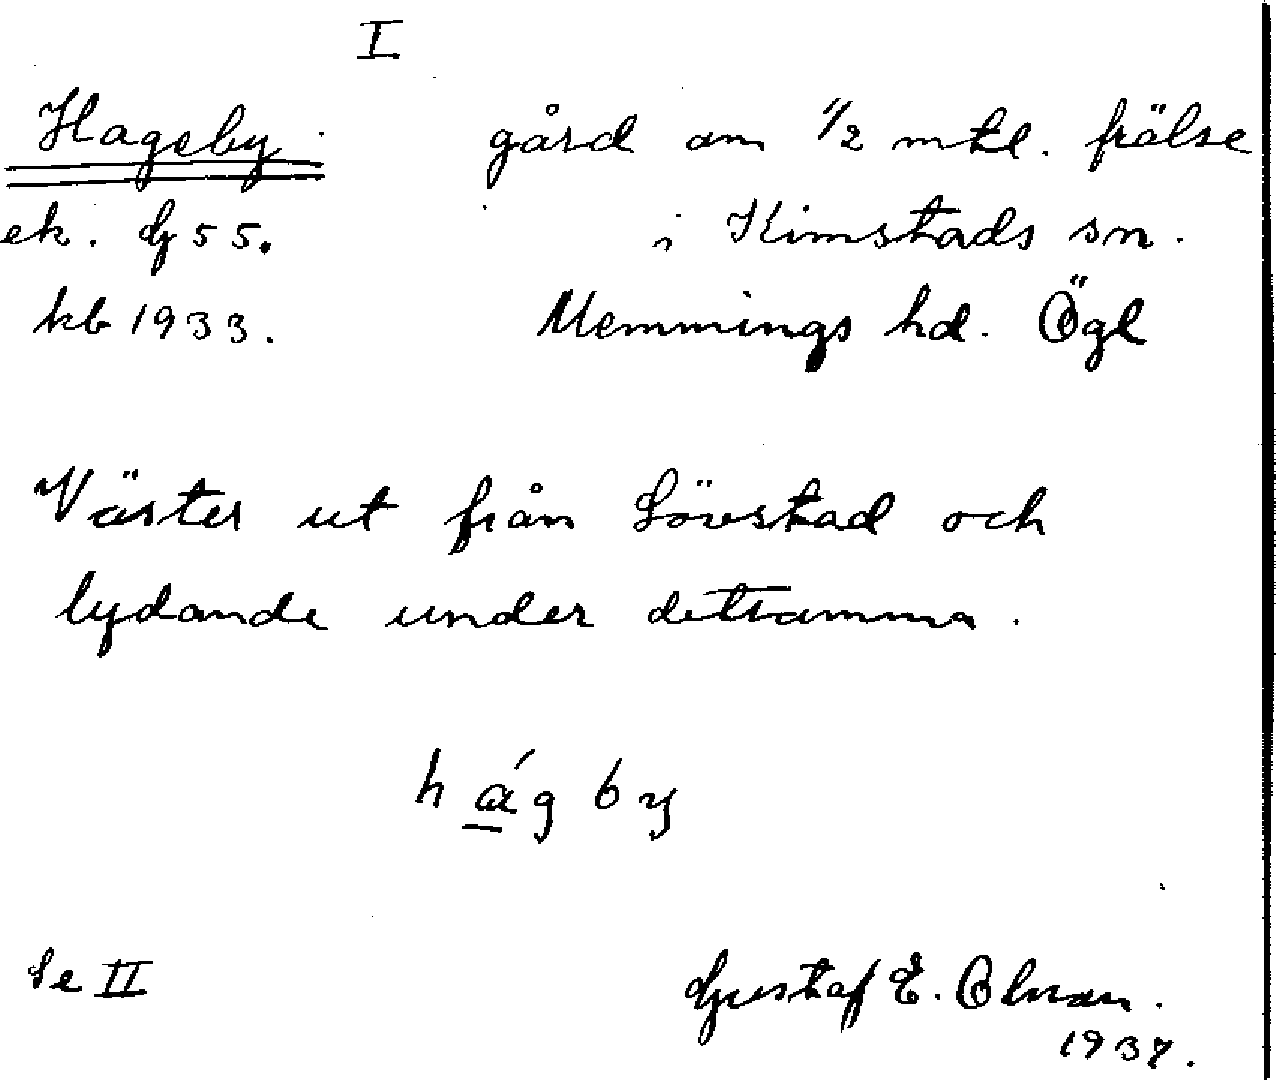 I
Hageby gård om 1/2 mtl. frälse
ek. G 55. i Kimstads sn.
kb 1933. Memmings hd. Ögl
Väster ut från Lövstad och
lydande under detsamma.
hágby
Se II Gustaf E.
1937.